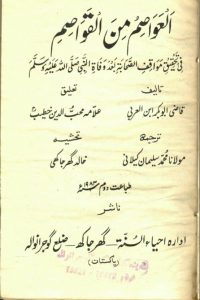 العواصم من القواصم
فی تحقیق مواقف الصحابۃ بعد وفاۃ النبی صلی اللہ علیہ وسلم
تالیف
تعلیق
قاضی ابوبکر ابن العربی
علامہ محب الدین خطیب
ترجمہ
تحشیہ
مولانا محمد سلیمان گیلانی
خالد گھرجاکھی
طباعت دوم
ناشر
ادارہ احیاء السنۃ گھرجاکھ ضلع گوجرانوالہ
(پاکستان)